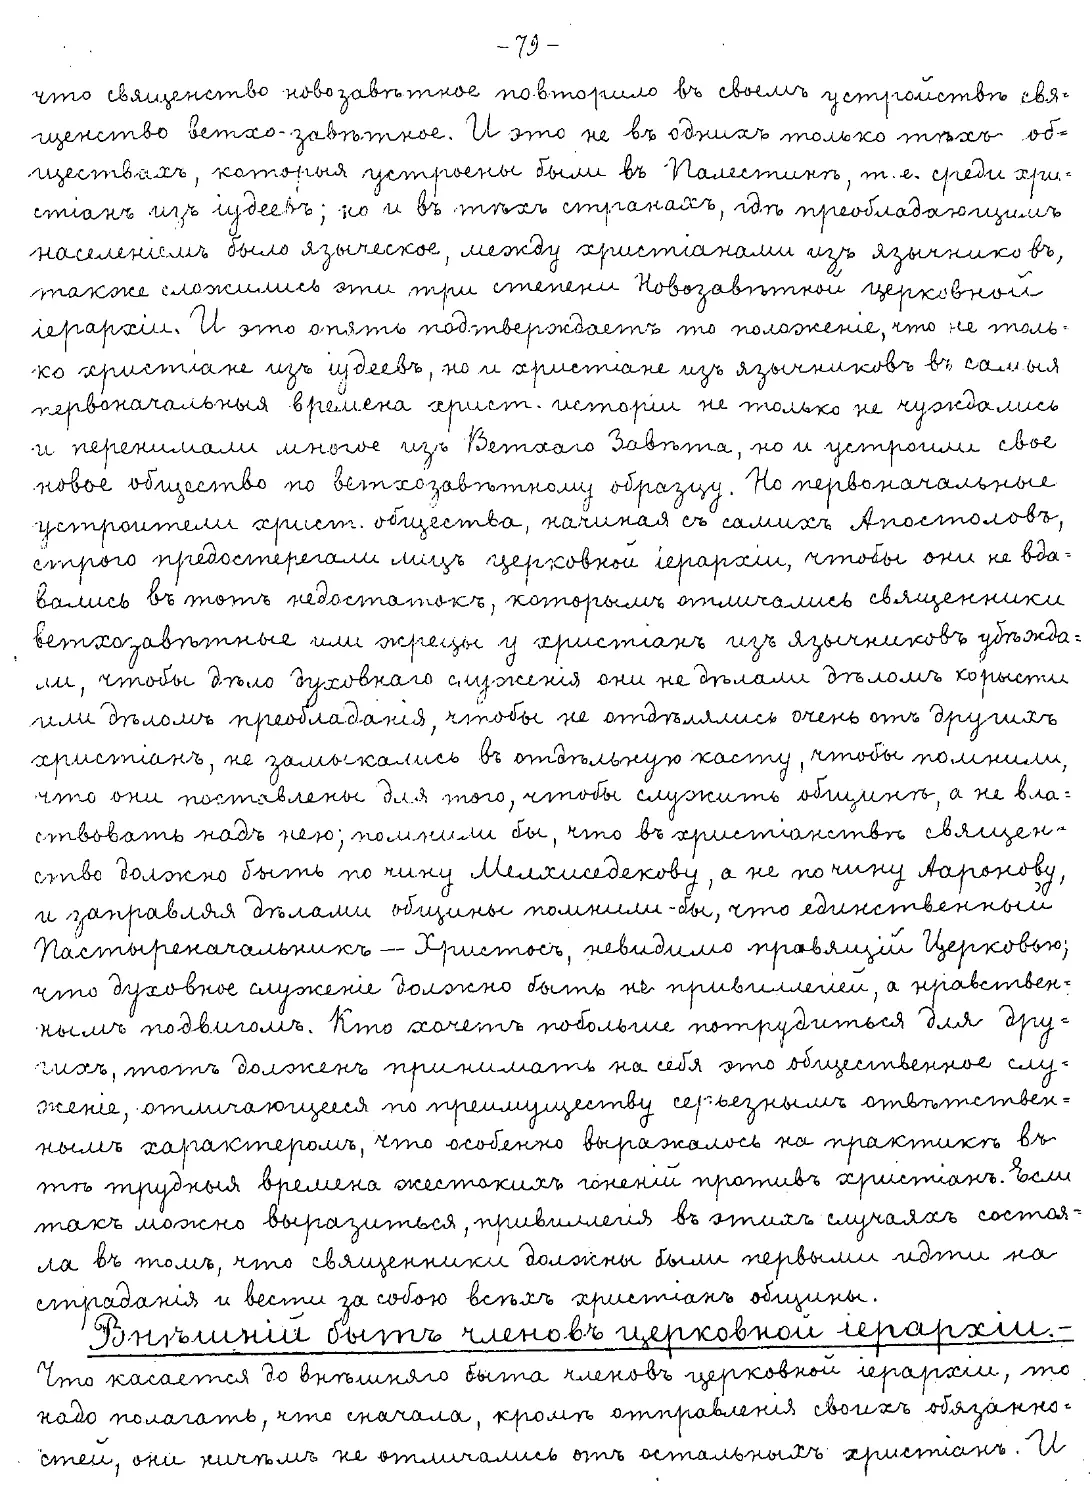 -79-
что священство новозавѣтное повторило въ своемъ устройствѣ свя-
щенство ветхо-завѣтное. И это не въ однихъ только тѣхъ об-
ществахъ, которыя устроены были въ Палестинѣ, т.е. среди хри-
стіанъ изъ іудеевъ; но и въ тѣхъ странахъ, гдѣ преобладающимъ
населеніемъ было языческое, между христіанами изъ язычниковъ,
также сложились эти три степени Новозавѣтной церковной
іерархіи. И это опять подтверждаетъ то положеніе, что не толь-
ко христіане изъ іудеевъ, но и христіане изъ язычниковъ въ самыя
первоначальныя времена христ. исторіи не только не чуждались
и перенимали многое изъ Ветхаго Завѣта, но и устроили свое
новое общество по ветхозавѣтному образцу. Но первоначальные
устроители христ. общества, начиная съ самихъ Апостоловъ,
строго предостерегали лицъ церковной іерархіи, чтобы они не вда-
вались въ тотъ недостатокъ, которымъ отличались священники
ветхозавѣтные или жрецы у христіанъ изъ язычниковъ убѣжда-
ли, чтобы дѣло духовнаго служенія они не дѣлали дѣломъ корысти
или дѣломъ преобладанія, чтобы не отдѣлялись очень отъ другихъ
христіанъ, не замыкались въ отдѣльную касту, чтобы помнили,
что они поставлены для того, чтобы служить общинѣ, а не вла-
ствовать надъ нею; помнили бы, что въ христіанствѣ священ-
ство должно быть по чину Мелхиседекову, а не по чину Ааронову,
и заправляя дѣлами общины помнили-бы, что единственный
Пастыреначальникъ — Христосъ, невидимо правящій Церковью;
что духовное служеніе должно быть не привиллегіей, а нравствен-
нымъ подвигомъ. Кто хочетъ побольше потрудиться для дру-
гихъ, тотъ долженъ принимать на себя это общественное слу-
женіе, отличающееся по преимуществу серьезнымъ отвѣтствен-
нымъ характеромъ, что особенно выражалось на практикѣ въ
тѣ трудныя времена жестокихъ гоненій противъ христіанъ. Если
такъ можно выразиться, привиллегія въ этихъ случаяхъ состоя-
ла въ томъ, что священники должны были первыми идти на
страданія и вести за собою всѣхъ христіанъ общины.
Внѣшній бытъ членовъ церковной іерархіи.-
Что касается до внѣшняго быта членовъ церковной іерархіи, то
надо полагать, что сначала, кромѣ отправленія своихъ обязанно-
стей, они ничѣмъ не отличались отъ остальныхъ христіанъ. И